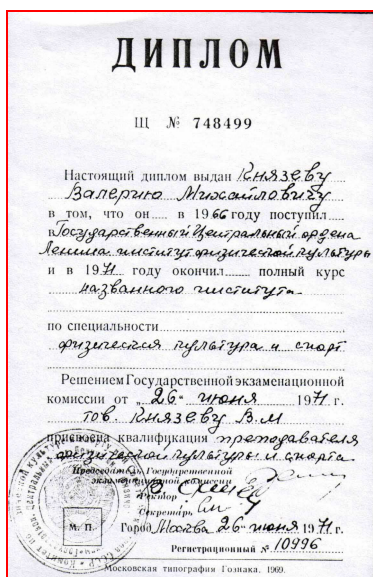 ДИПЛОМ
Щ № 748499
Настоящий диплом выдан Князеву
Валерию Михайловичу
в том, что он в 1966 году поступил
в Государственный Центральный ордена
Ленина институт физической культуры
и в 1971 году окончил полный курс
названного института
по специальности
физическая культура и спорт
Решением Государственной экзаменационной
комиссии от „26“ июня 1971 г.
тов. Князеву В.М
присвоена квалификация преподавателя
физической культуры и спорта
Председатель Государственной
экзаменационной комиссии
Ректор
Секретарь
М. П.
Город Москва 26 июня 1971 г.
Регистрационный № 10996
Московская типография Гознака. 1969.